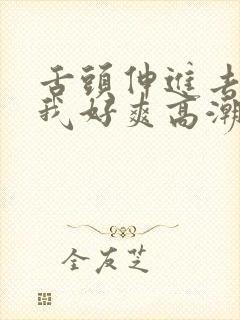 舌頭伸進去
我好爽高潮
全友芝